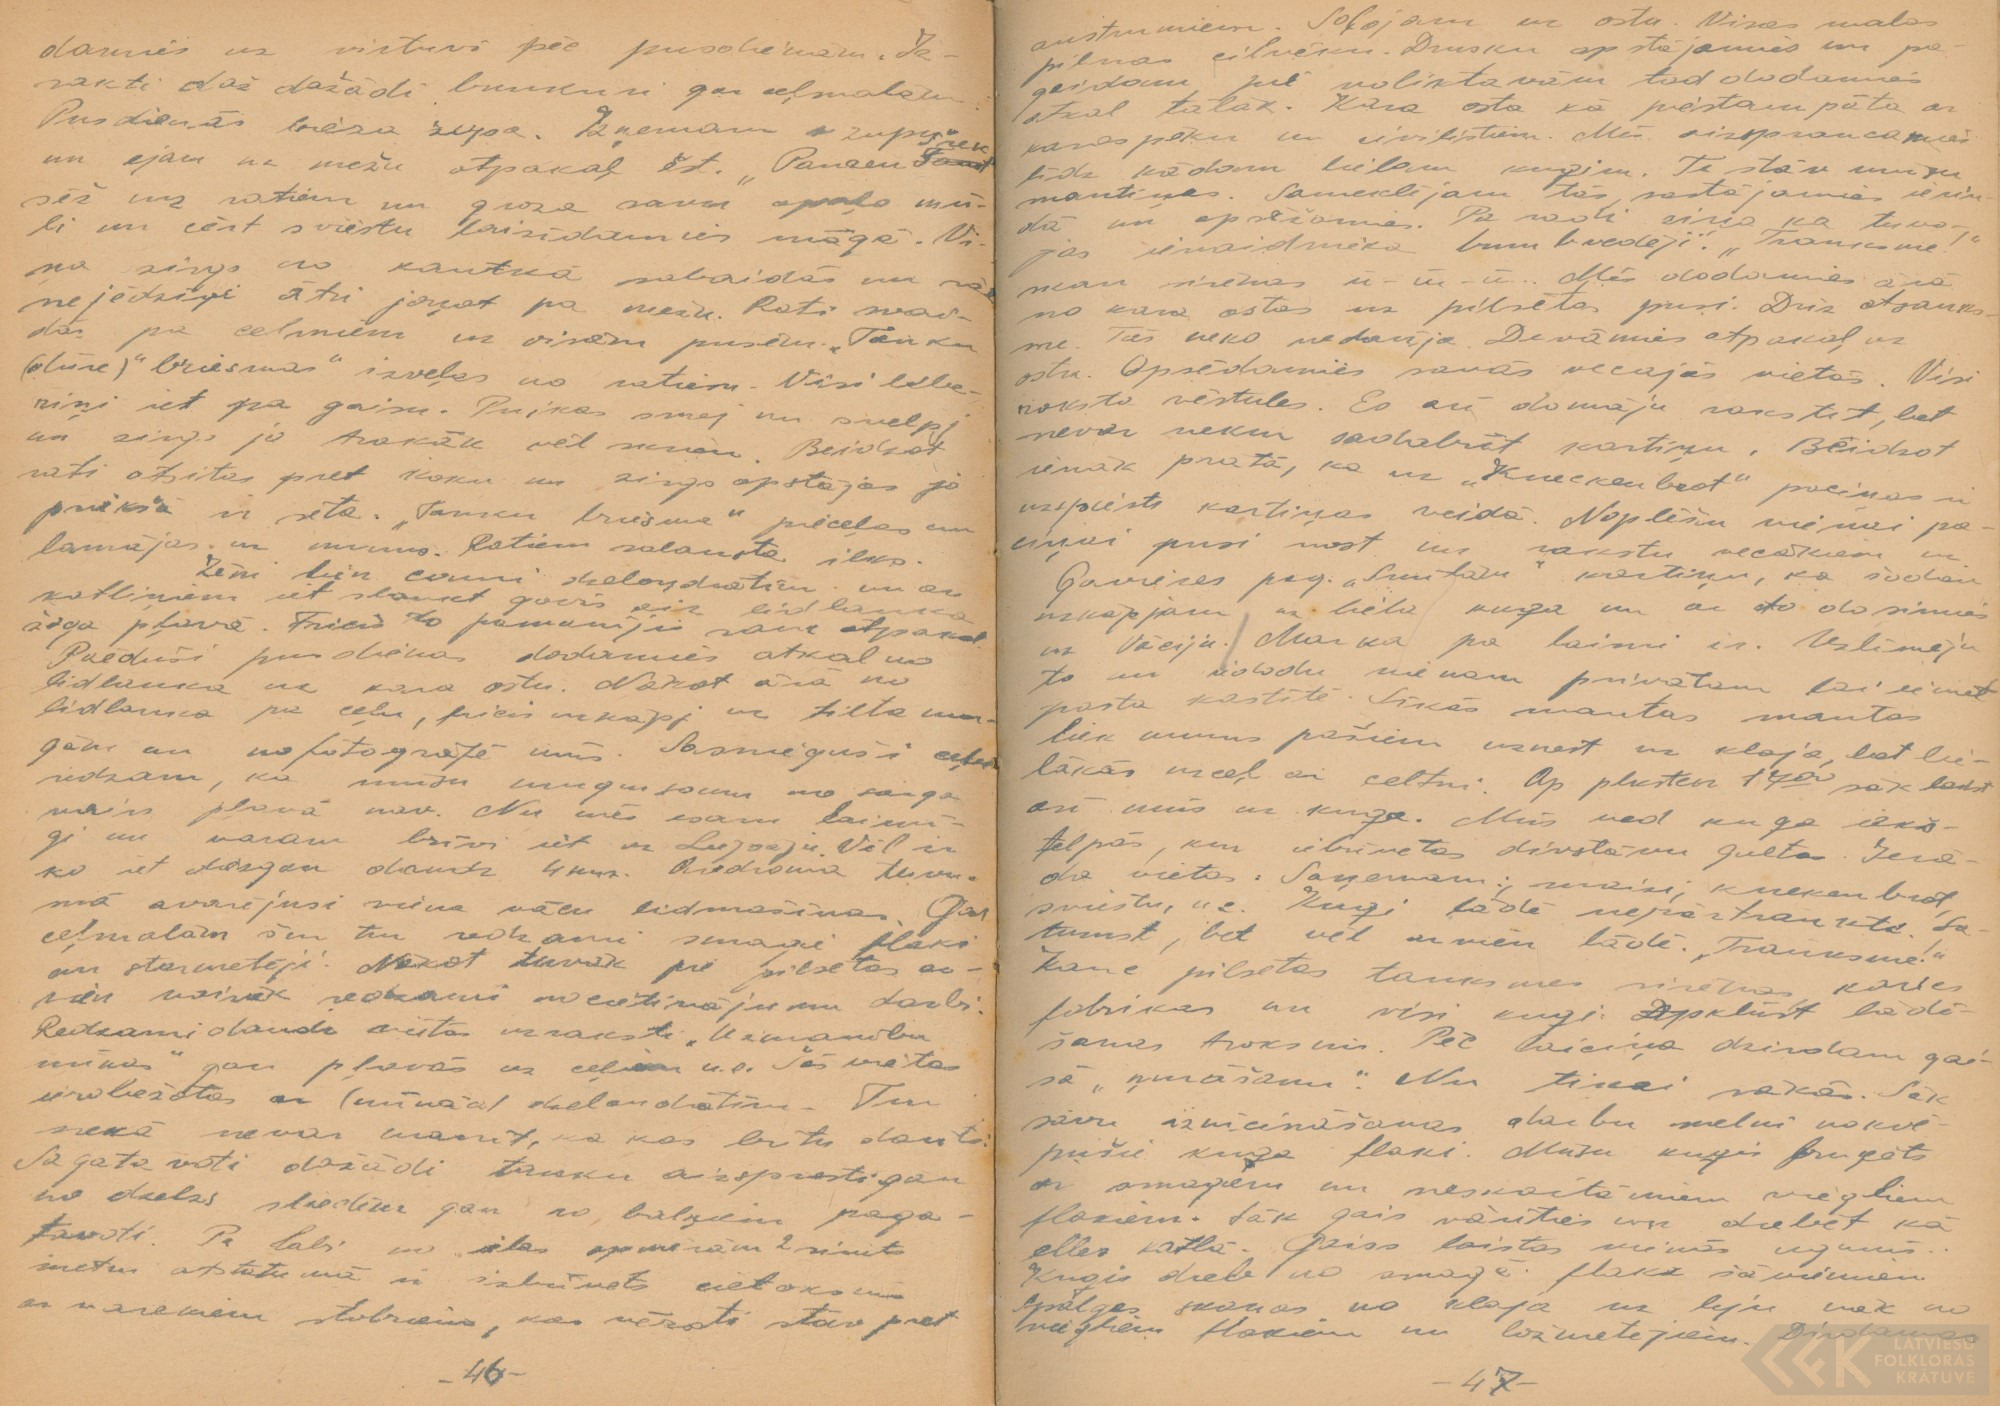 damies uz virtuvi pēc pusdienām. Iz-
rakti daž dažādi bunkuri gar ceļmalām.
Pusdienās bieza zupa. Izņemam zupu
un ejam uz mežu atpakaļ ēst. "Panzen
sēž uz ratiem un groza savu apaļo mū-
li un cērt sviestu laizīdamies māgā. Vi-
ņa zirgs no kautkā sabaidās un sāk
nejēdzīgi ātri joņot pa mežu. Rati svai-
dās pa celmiem uz visām pusēm. "Tanku
(dūre)" briesmas" izveļas no ratiem. Visi
iet pa gaisu. Puikas smej un svelpj
un zirgs jo trakāk vēl skrien. Beidzot
rati atsitas pret koku un zirgs apstājas jo
priekšā ir sēta. "Tanku briesma" pieceļas un
lamājas uz mums. Ratiem salauzta ilks.
Zēni lien cauri dzeloņdrātīm un ar
katliņiem iet slaukt govis aiz lidlauka
sarga pļavā. Fricis to pamanījis sauc atpakaļ
Paēduši pusdienas dodamies atkal no
lidlauka uz kara ostu. Nākot ārā no
lidlauka pa ceļu, fricis uzkāpj uz tilta mar-
gām un nofotografē mūs. Sasnieguši ceļu
redzam, ka mūsu mugursomu no sarga
vairs pļavā nav. Nu mēs esam laimī-
gi un varam brīvi iet uz Liepāju. Vēl ir
ko iet dazgan daudz 4 km. Aerodroma tuvu-
mā avarējusi viena vācu lidmašīnas. Gar
ceļmalām šur tur redzami smagi flaki
un starmetēji. Nākot tuvāk pie pilsētas ar-
vien vairāk redzami nocietinājumu darbi.
Redzami daudz vietās uzraksti "Uzmanību
mīnas" gan pļavās uz ceļiem u.c. Šīs vietas
ierobežotas ar (mīnām) dzeloņdrātīm. Tur
nekā nevar manīt, ka kas būtu darīts.
Sagatavoti dažādi tanku aizsprosti gan
no dzelzs sliedēm gan no baļķiem paga-
tavoti. Pa labi no ielas apmēram 2 simts
metru atstatumā ir izbūvēts cietoksnis
ar vareniem stobriem, kas vērsti stāv pret
-46-
austrumiem. Soļojam uz ostu. Visas malas
pilnas cilvēku. Drusku apstājamies un pa-
geidam pie noliktavām tad dodamies
atkal tālāk. Kara osta kā piestampāta ar
karaspēku un civilistiem. Mēs aizspraucamies
līdz kādam lielam kuģim. Te stāv mūsu
mantiņas. Sameklējam tās, sastājamies ierin-
dā un apsēžamies. Pa radi ziņo ka tuvo-
jas ienaidnieka bumbvedēji. "Trauksme!"
skan sirēnas ū-ū-ū.. Mēs dodamies ārā
no kara ostas uz pilsētas pusi. Drīz atsauks-
me. Tas neko nedarīja. Devāmies atpakaļ uz
ostu. Apsēdāmies savās vecajās vietās. Visi
raksta vēstules. Es arī domāju rakstīt, bet
nevar nekur sadabūt kartiņu. Beidzot
ienāk prātā, ka uz "Kneckenbrot" paciņas ir
uzspiests kartiņas veidā. Noplēšu vienai pa-
ciņai pusi nost un rakstu vecākiem uz
Gaviezes pag. "Smiltām" kartiņu, ka šodien
uzkāpjam uz liela kuģa un ar to dosimies
uz Vāciju. Marka pa laimi ir. Uzlīmēju
to un iedodu vienam privātam lai iemet
pasta kastītē. Sīkās mantas mantas
liek mums pašiem uznest uz klāja, bet lie-
lākās uzceļ ar celtni. Ap plksten 17⁰⁰ sāk laist
arī mūs uz kuģa. Mūs ved kuģa iekš-
telpās, kur iebūvētas divstāvu gultas. Ierā-
da vietas. Saņemam: maizi, knekenbrot,
sviestu, u.c. Kuģi lādē nepārtraukti. Sa-
tumst, bet vēl arvien lādē. "Trauksme!"
Kauc pilsētas trauksmes sirēnas kauc
fabrikas un visi kuģi. Apklust lādē-
šanas troksnis. Pēc laiciņa dzirdam gai-
sā "ņurāšanu". Nu tikai sākās. Sāk
savu iznīcināšanas darbu melni nokvē-
pušie kuģa flaki. Mūsu kuģis bruņots
ar smagiem un neskaitāmiem viegliem
flakiem. Sāk gais vārīties un drebēt kā
elles katlā. Gaiss laistas vienās ugunīs..
Kuģis dreb no smagā flaka šāvieniem
Spalgas skaņas no klāja uz leju nāk no
viegliem flakiem un ložmetējiem. Dzirdamas
-47-
LATVIEŠU
FOLKLORAS
KRĀTUVE